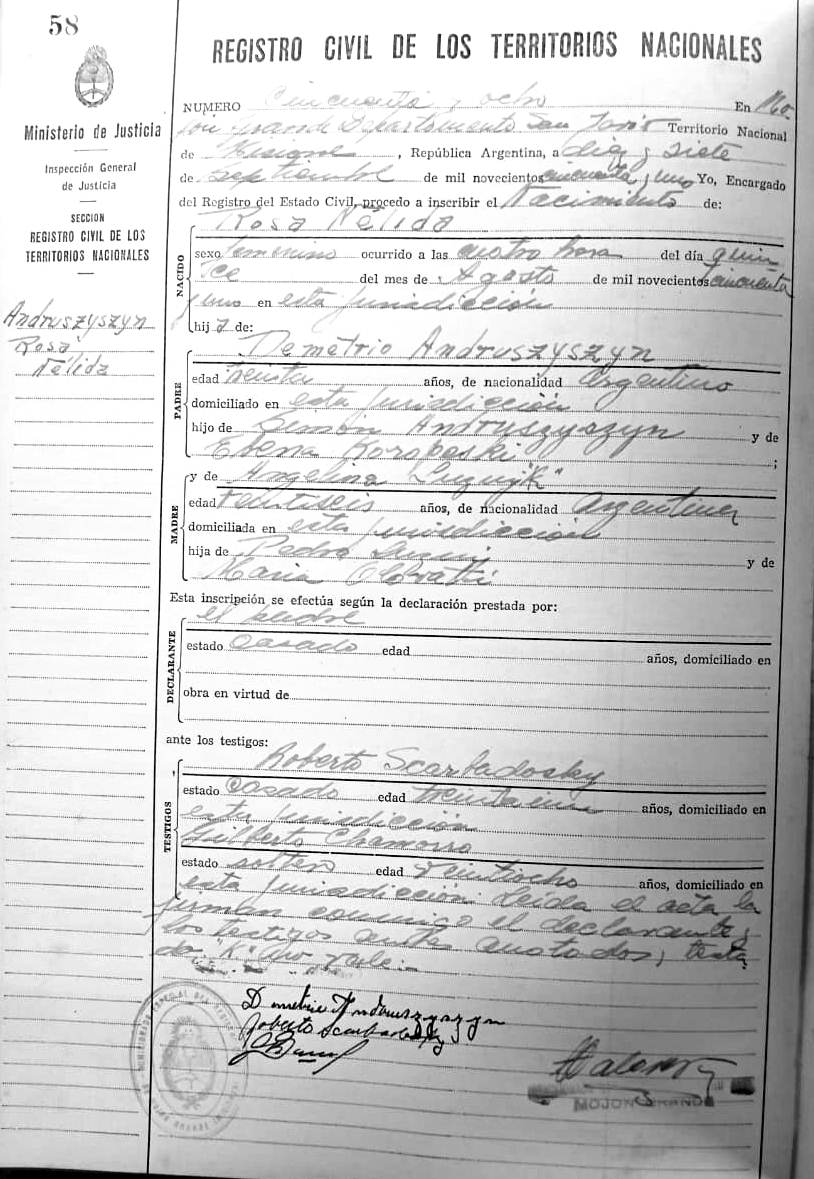 58
REGISTRO CIVIL DE LOS TERRITORIOS NACIONALES
Ministerio de Justicia
Inspección General
de Justicia
SECCION
REGISTRO CIVIL DE LOS
TERRITORIOS NACIONALES
Andruszyszyn
Rosa
Nélida
NUMERO Cincuenta y ocho En Mo
jón Grande Departamento San Javier Territorio Nacional
de Misiones, República Argentina, a diez y siete
de septiembre de mil novecientos cincuenta y uno Yo, Encargado
del Registro del Estado Civil, procedo a inscribir el Nacimiento de:
NACIDO
Rosa Nélida
sexo femenino ocurrido a las cuatro hora del día quin
ce del mes de Agosto de mil novecientos cincuenta
y uno en esta jurisdicción
hija de:
PADRE
Demetrio Andruszyszyn
edad treinta años, de nacionalidad Argentino
domiciliado en esta jurisdicción
hijo de Simón Andruszyszyn y de
Elena ;
MADRE
y de Angelina
edad veintiseis años, de nacionalidad Argentina
domiciliada en esta jurisdicción
hija de Pedro y de
Maria
Esta inscripción se efectúa según la declaración prestada por:
DECLARANTE
el padre
estado Casado edad años, domiciliado en
obra en virtud de
ante los testigos:
TESTIGOS
Roberto Scarbadosky
estado Casado edad treinta años, domiciliado en
esta jurisdicción
Gilberto Chamorro
estado soltero edad veintiocho años, domiciliado en
esta jurisdicción leida el acta la
firman conmigo el declarante y
los testigos antes anotados, testa
do "K" no vale
Demetrio Andruszyszyn
Roberto
MOJON GRANDE